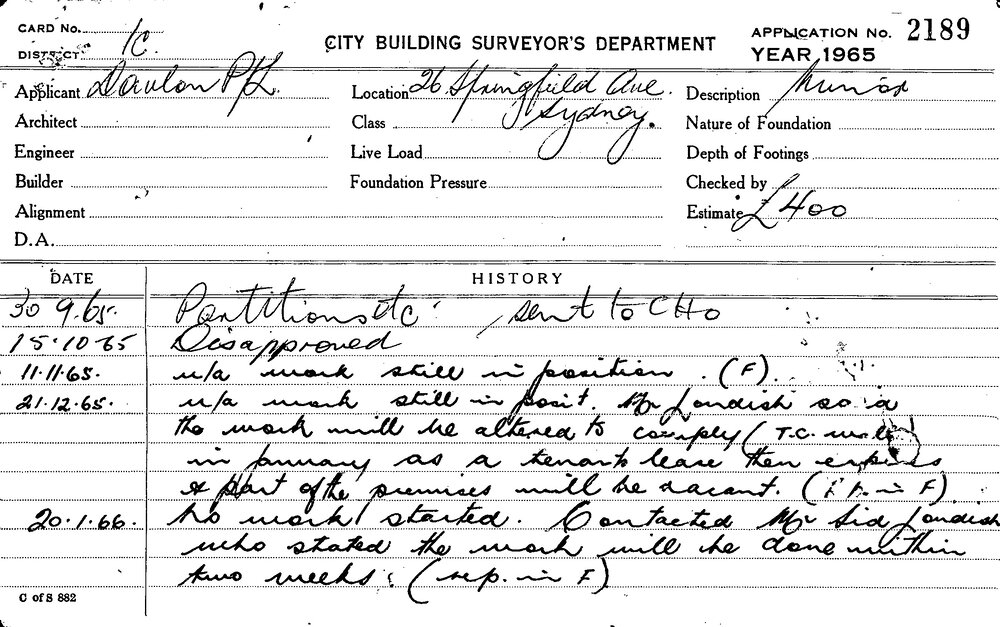 CARD No.
DISTRICT 1C.
CITY BUILDING SURVEYOR'S DEPARTMENT
APPLICATION No. 2189
YEAR 1965
Applicant P/L. Location 26 Springfield Ave. Description
Architect Class Sydney. Nature of Foundation
Engineer Live Load Depth of Footings
Builder Foundation Pressure Checked by
Alignment Estimate £400
D.A.
DATE HISTORY
30 9.65. Partitions etc. sent to CHO
15.10.65 Disapproved
11.11.65. u/a work still in position. (F).
21.12.65. u/a work still in posit. Mr Landish said
the work will be altered to comply (T.C.
in January as a tenants lease then expires
& part of the premises will be vacant. (in F).
20.1.66. No work started. Contacted Mr Sid Landish
who stated the work will be done within
two weeks. (rep. in F)
C of S 882